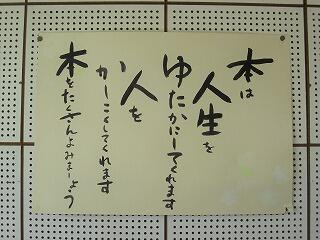 本は
人生を
ゆたかにしてくれます
人を
かしこくしてくれます
本をたくさんよみましょう